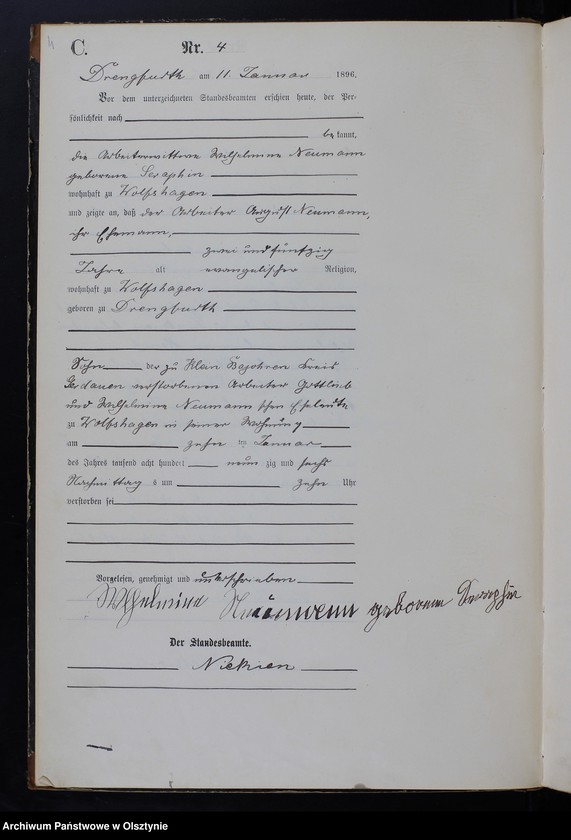 C.
Nr. 4
Drengfurth am 11. Januar 1896.
Vor dem unterzeichneten Standesbeamten erschien heute, der Per-
sönlichkeit nach
bekannt,
die Arbeiterwittwe Wilhelmine Neumann
geborene Seraphin
wohnhaft zu Wolfshagen
und zeigte an, daß der Arbeiter August Neumann,
ihr Ehemann,
zwei und fünfzig
Jahre alt evangelischer Religion,
wohnhaft zu Wolfshagen
geboren zu Drengfurth
Sohn der zu Klein Bajohren Kreis
Gerdauen verstorbenen Arbeiter Gottlieb
und Wilhelmine Neumann'schen Eheleute
zu Wolfshagen in seiner Wohnung
am zehn ten Januar
des Jahres tausend acht hundert neun zig und sechs
Nachmittag s um zehn Uhr
verstorben sei
Vorgelesen, genehmigt und unterschrieben
Wilhelmine Neumann geborene Seraphin
Der Standesbeamte.
Archiwum Państwowe w Olsztynie